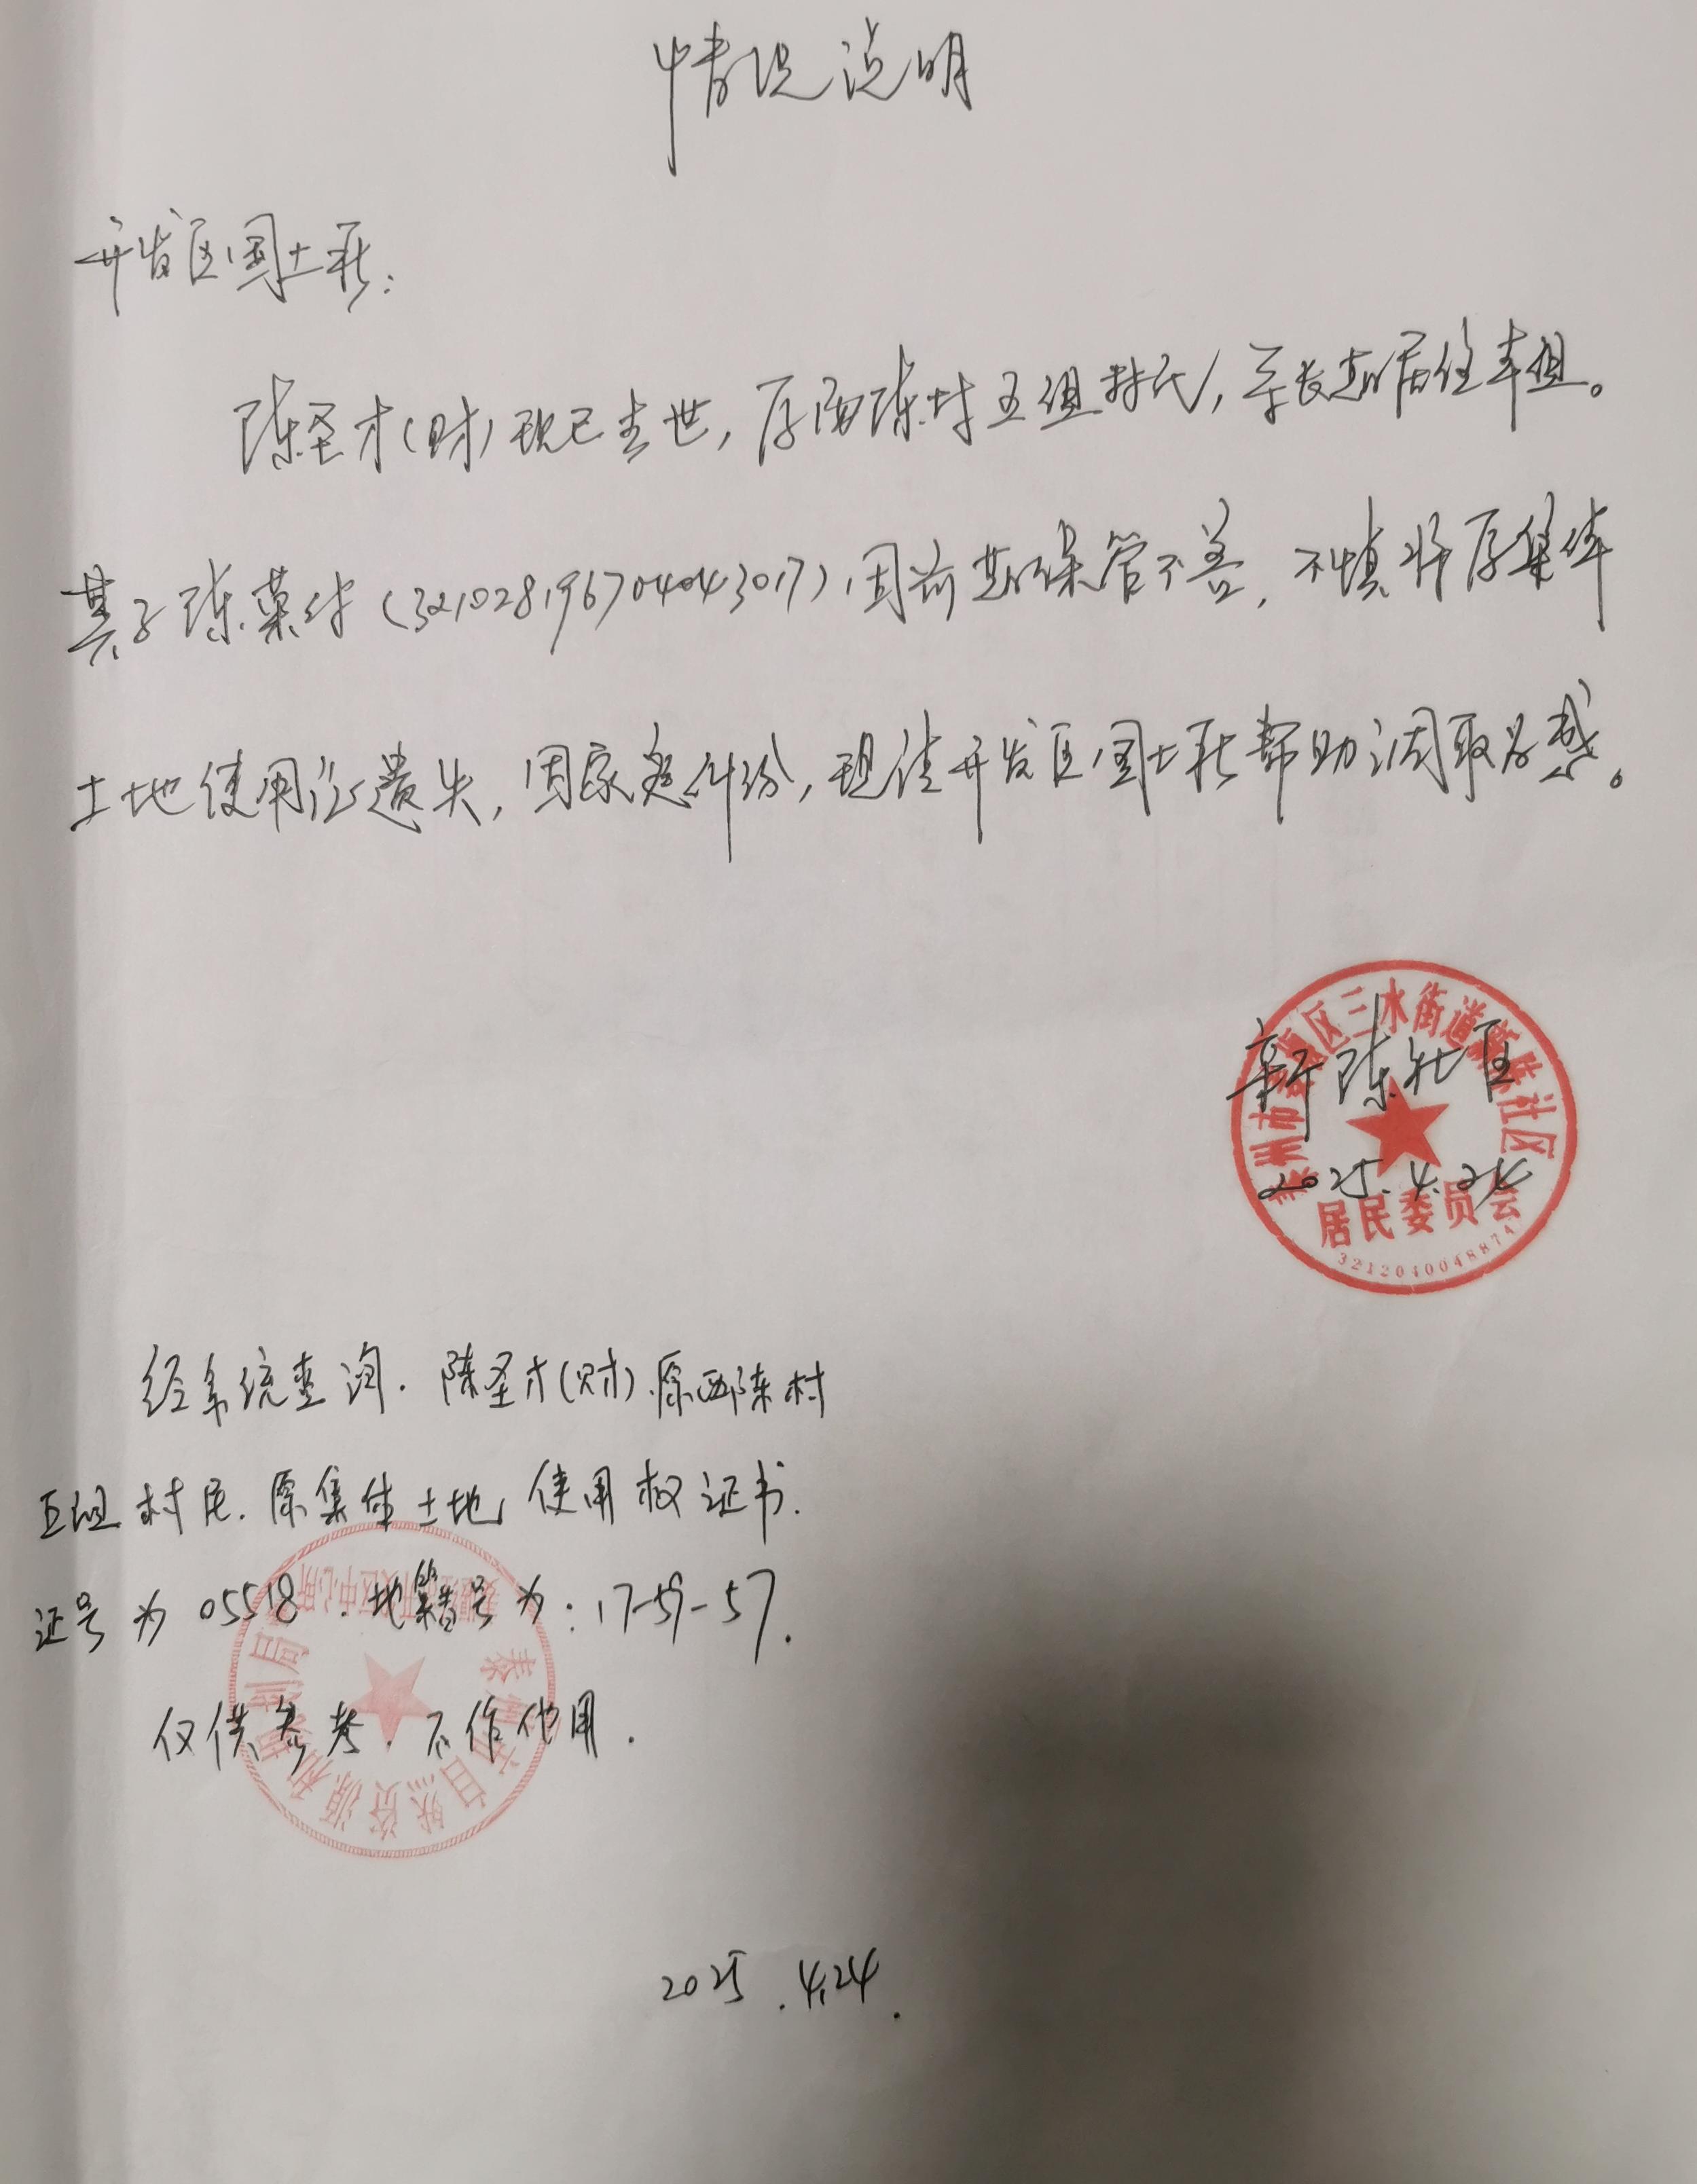 情况说明
开发区国土所:
陈圣才(财)现已去世,原西陈村五组村民,并长期居住本组。
其子陈荣华(321028196704043017),因前期保管不善,不慎将原集体
土地使用证遗失,因家庭纠纷,现请开发区国土所帮助调取为感。
泰州市姜堰区三水街道新陈社区
新陈社区
2025.4.24
居民委员会
3212040048874
经系统查询.陈圣才(财).原西陈村
五组村民.原集体土地使用权证书.
证号为05518.地籍号为:17-59-57.
仅供参考.不作他用.
泰州市自然资源和规划局
2025.4.24.